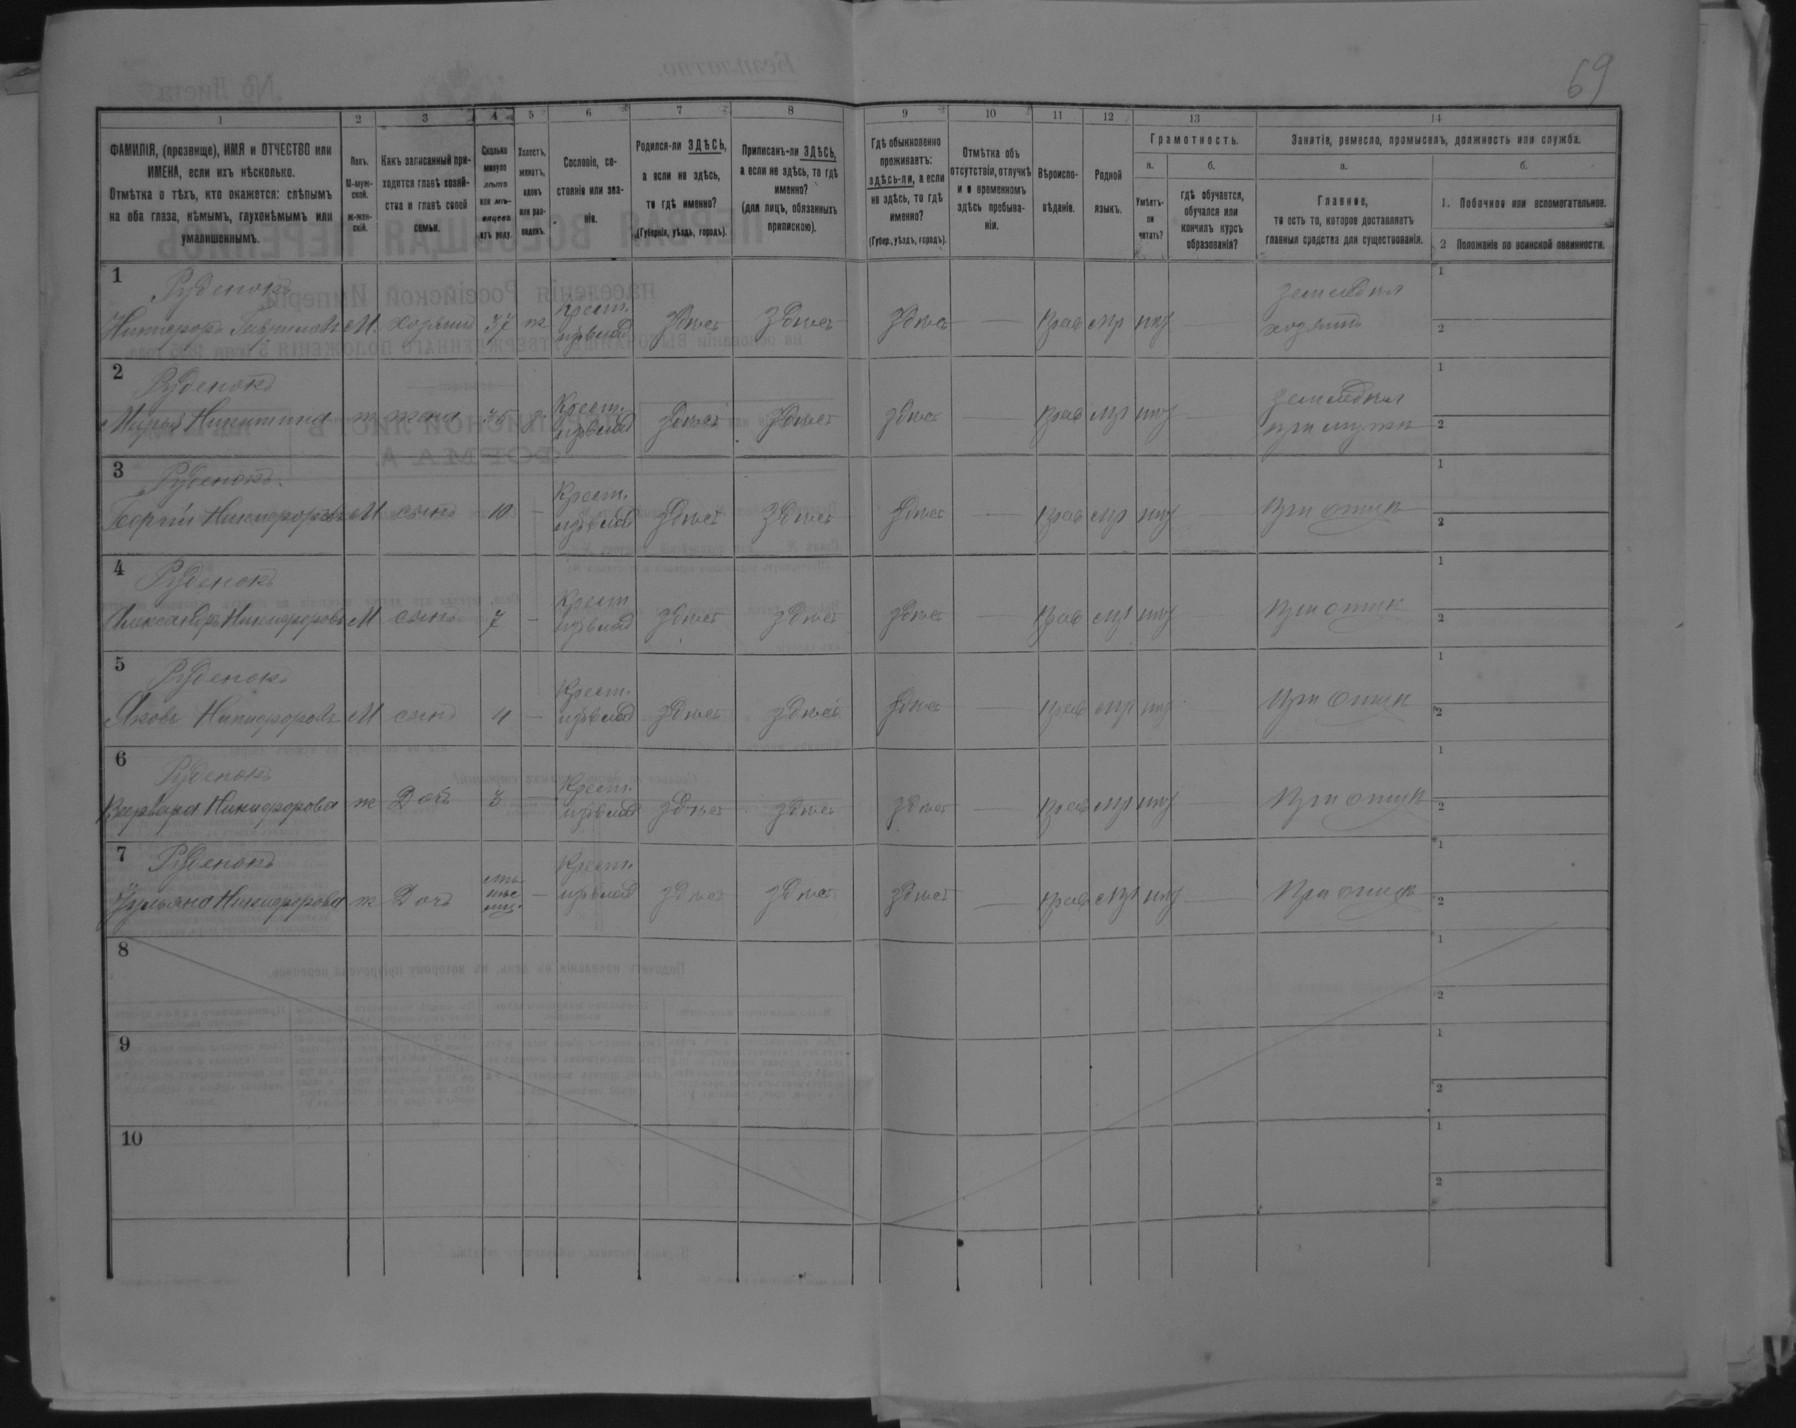 69
1 2 3 4 5 6 7 8 9 10 11 12 13 14
ФАМИЛІЯ, (прозвище), ИМЯ и ОТЧЕСТВО или
ИМЕНА, если ихъ нѣсколько.
Отмѣтка о тѣхъ, кто окажется: слѣпымъ
на оба глаза, нѣмымъ, глухонѣмымъ или
умалишеннымъ.
Полъ.
М-муж-
ской.
ж-жен-
скій.
Какъ записанный при-
ходится главѣ хозяй-
ства и главѣ своей
семьи.
Сколько
минуло
лѣтъ
или мѣ-
сяцевъ
отъ роду.
Холостъ,
женатъ,
вдовъ
или раз-
веденъ.
Сословіе, со-
стояніе или зва-
ніе.
Родился-ли ЗДѢСЬ,
а если не здѣсь,
то гдѣ именно?
(Губернія, уѣздъ, городъ).
Приписанъ-ли ЗДѢСЬ,
а если не здѣсь, то гдѣ
именно?
(для лицъ, обязанныхъ
припискою).
Гдѣ обыкновенно
проживаетъ:
здѣсь-ли, а если
не здѣсь, то гдѣ
именно?
(Губер., уѣздъ, городъ).
Отмѣтка объ
отсутствіи, отлучкѣ
и о временномъ
здѣсь пребыва-
ніи.
Вѣроиспо-
вѣданіе.
Родной
языкъ.
Грамотность.
а.
Умѣетъ-
ли
читать?
б.
гдѣ обучается,
обучался или
кончилъ курсъ
образованія?
Занятіе, ремесло, промыселъ, должность или служба.
а.
Главное,
то есть то, которое доставляетъ
главныя средства для существованія.
б.
1. Побочное или вспомогательное.
2 Положеніе по воинской повинности.
1
Руденокъ
М хозяинъ 37 ж Крест. здѣсь здѣсь здѣсь — Прав мр нѣт —
хозяинъ
1
2
2
Руденокъ
Марья Никитина ж жена 35 з. Крест. здѣсь здѣсь здѣсь — Прав мр нѣт —
при мужѣ
1
2
3
Руденокъ
Георгій Никифоровъ М сынъ 10 — Крест. здѣсь здѣсь здѣсь — Прав мр нѣт — При отцѣ
1
2
4
Руденокъ
Александръ Никифоровъ М сынъ 7 — Крест здѣсь здѣсь здѣсь — Прав мр нѣт — При отцѣ
1
2
5
Руденокъ
Яковъ Никифоровъ М сынъ 4 — Крест. здѣсь здѣсь здѣсь — Прав мр нѣт — При отцѣ
1
2
6
Руденокъ
Варвара Никифорова ж Дочь 3 — Крест. здѣсь здѣсь здѣсь — Прав мр нѣт — При отцѣ
1
2
7
Руденокъ
Ульяна Никифорова ж Дочь — Крест. здѣсь здѣсь здѣсь — Прав мр нѣт — При отцѣ
1
2
8
1
2
9
1
2
10
1
2